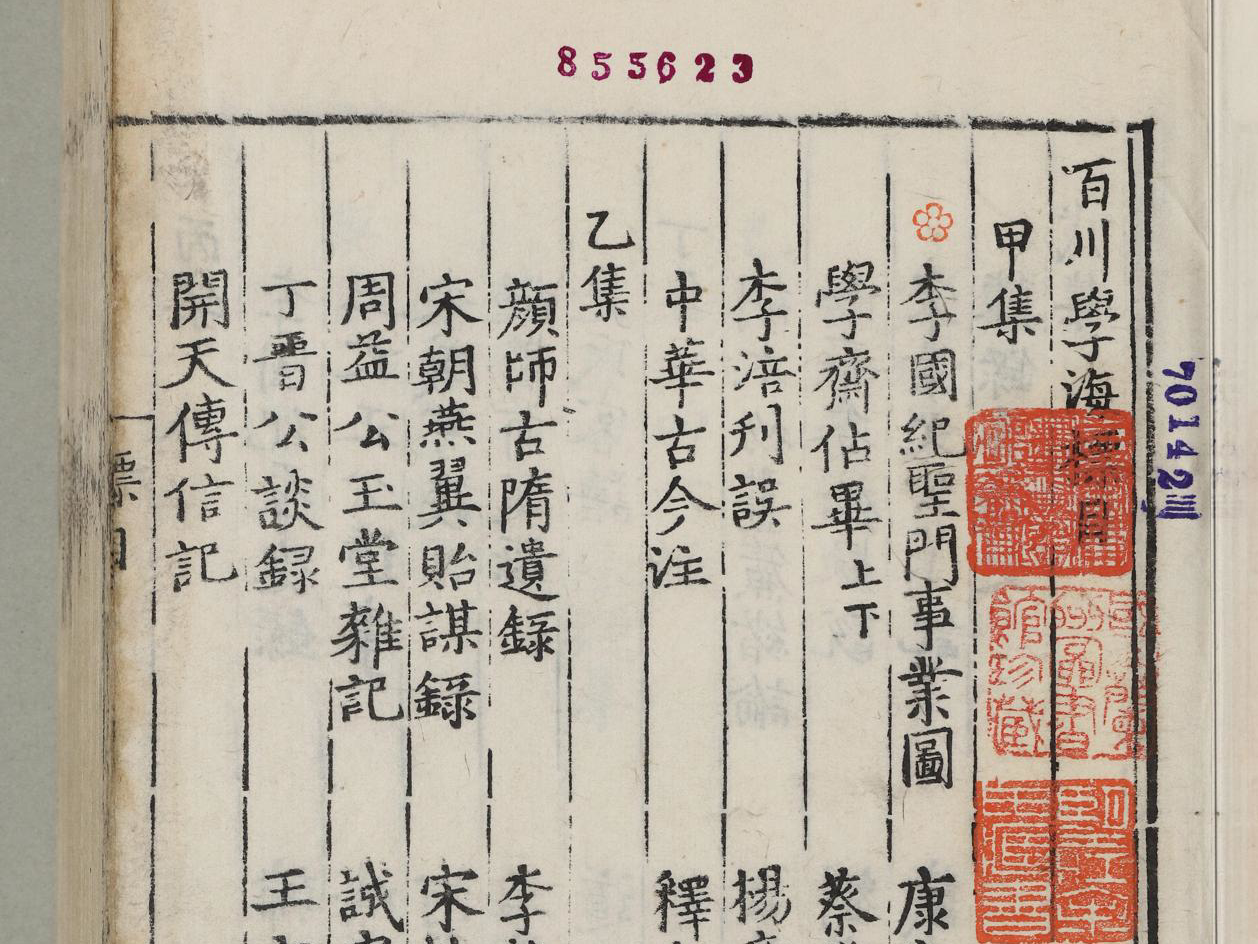 855623
百川學海標目
甲集
李國紀聖門事業圖 康
學齋佔畢上下 蔡
李涪刊誤 楊
中華古今注 釋
乙集
顔師古隋遺録 李
宋朝燕翼貽謀録 宋
周益公玉堂雜記 誠
丁晋公談録 王
開天傳信記
標目
70142